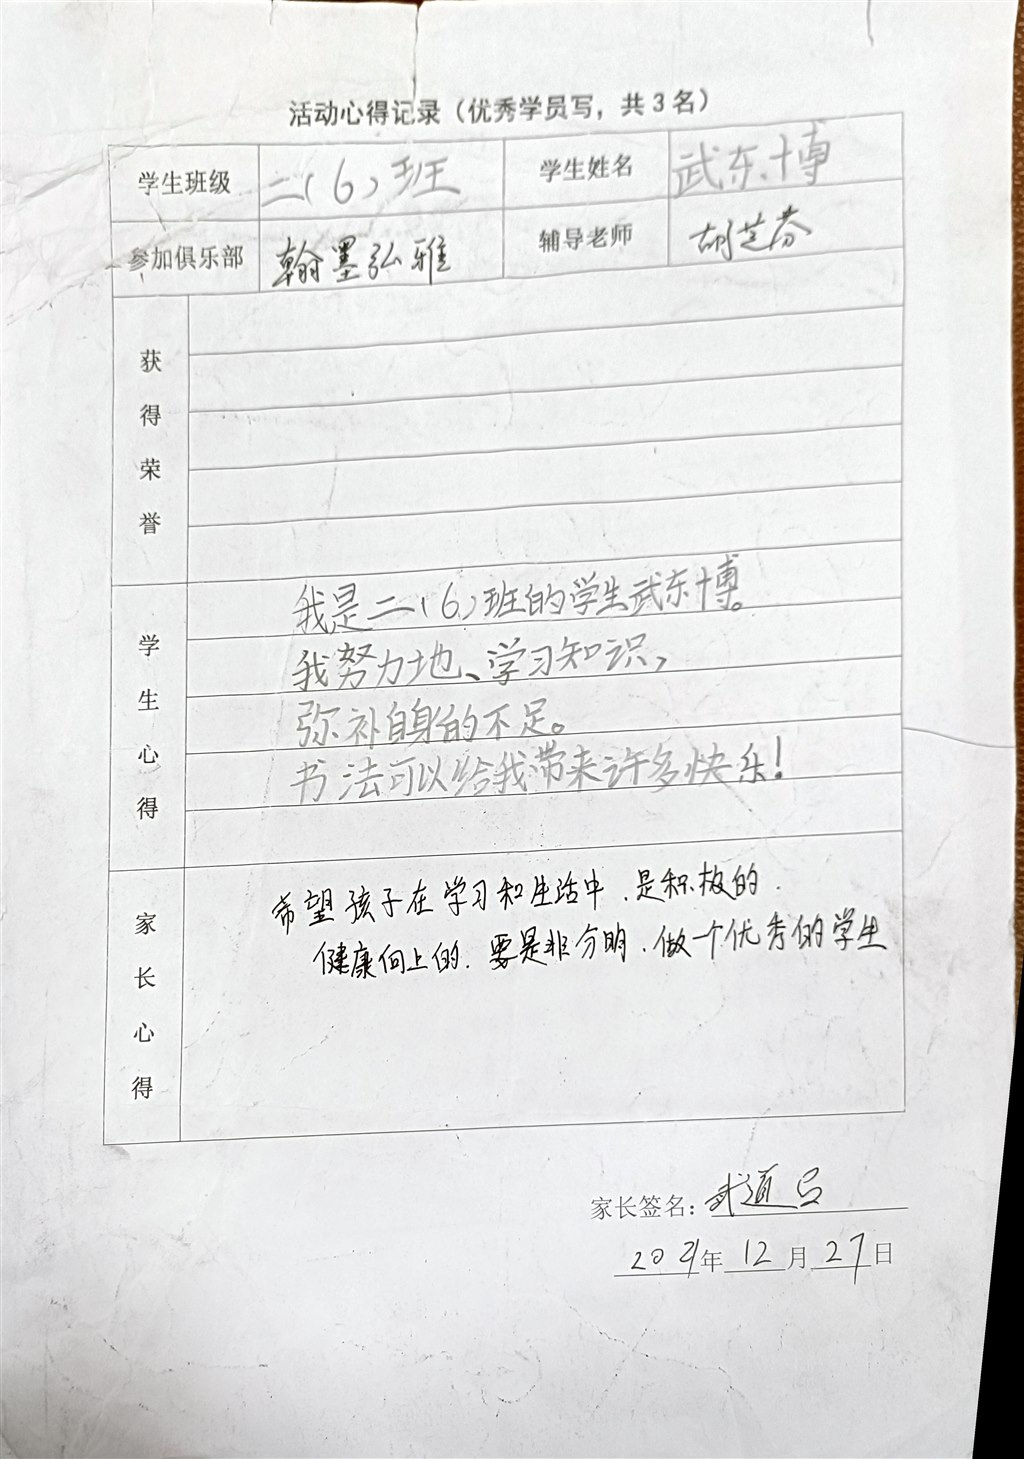 活动心得记录（优秀学员写，共3名）
学生班级 二（6）班 学生姓名 武东博
参加俱乐部 翰墨弘雅 辅导老师 胡芝芬
获得荣誉
学生心得
我是二（6）班的学生武东博。
我努力地、学习知识，
弥补自身的不足。
书法可以给我带来许多快乐！
家长心得
希望孩子在学习和生活中、是积极的、
健康向上的、要是非分明、做一个优秀的学生
家长签名：武道
2021年12月27日